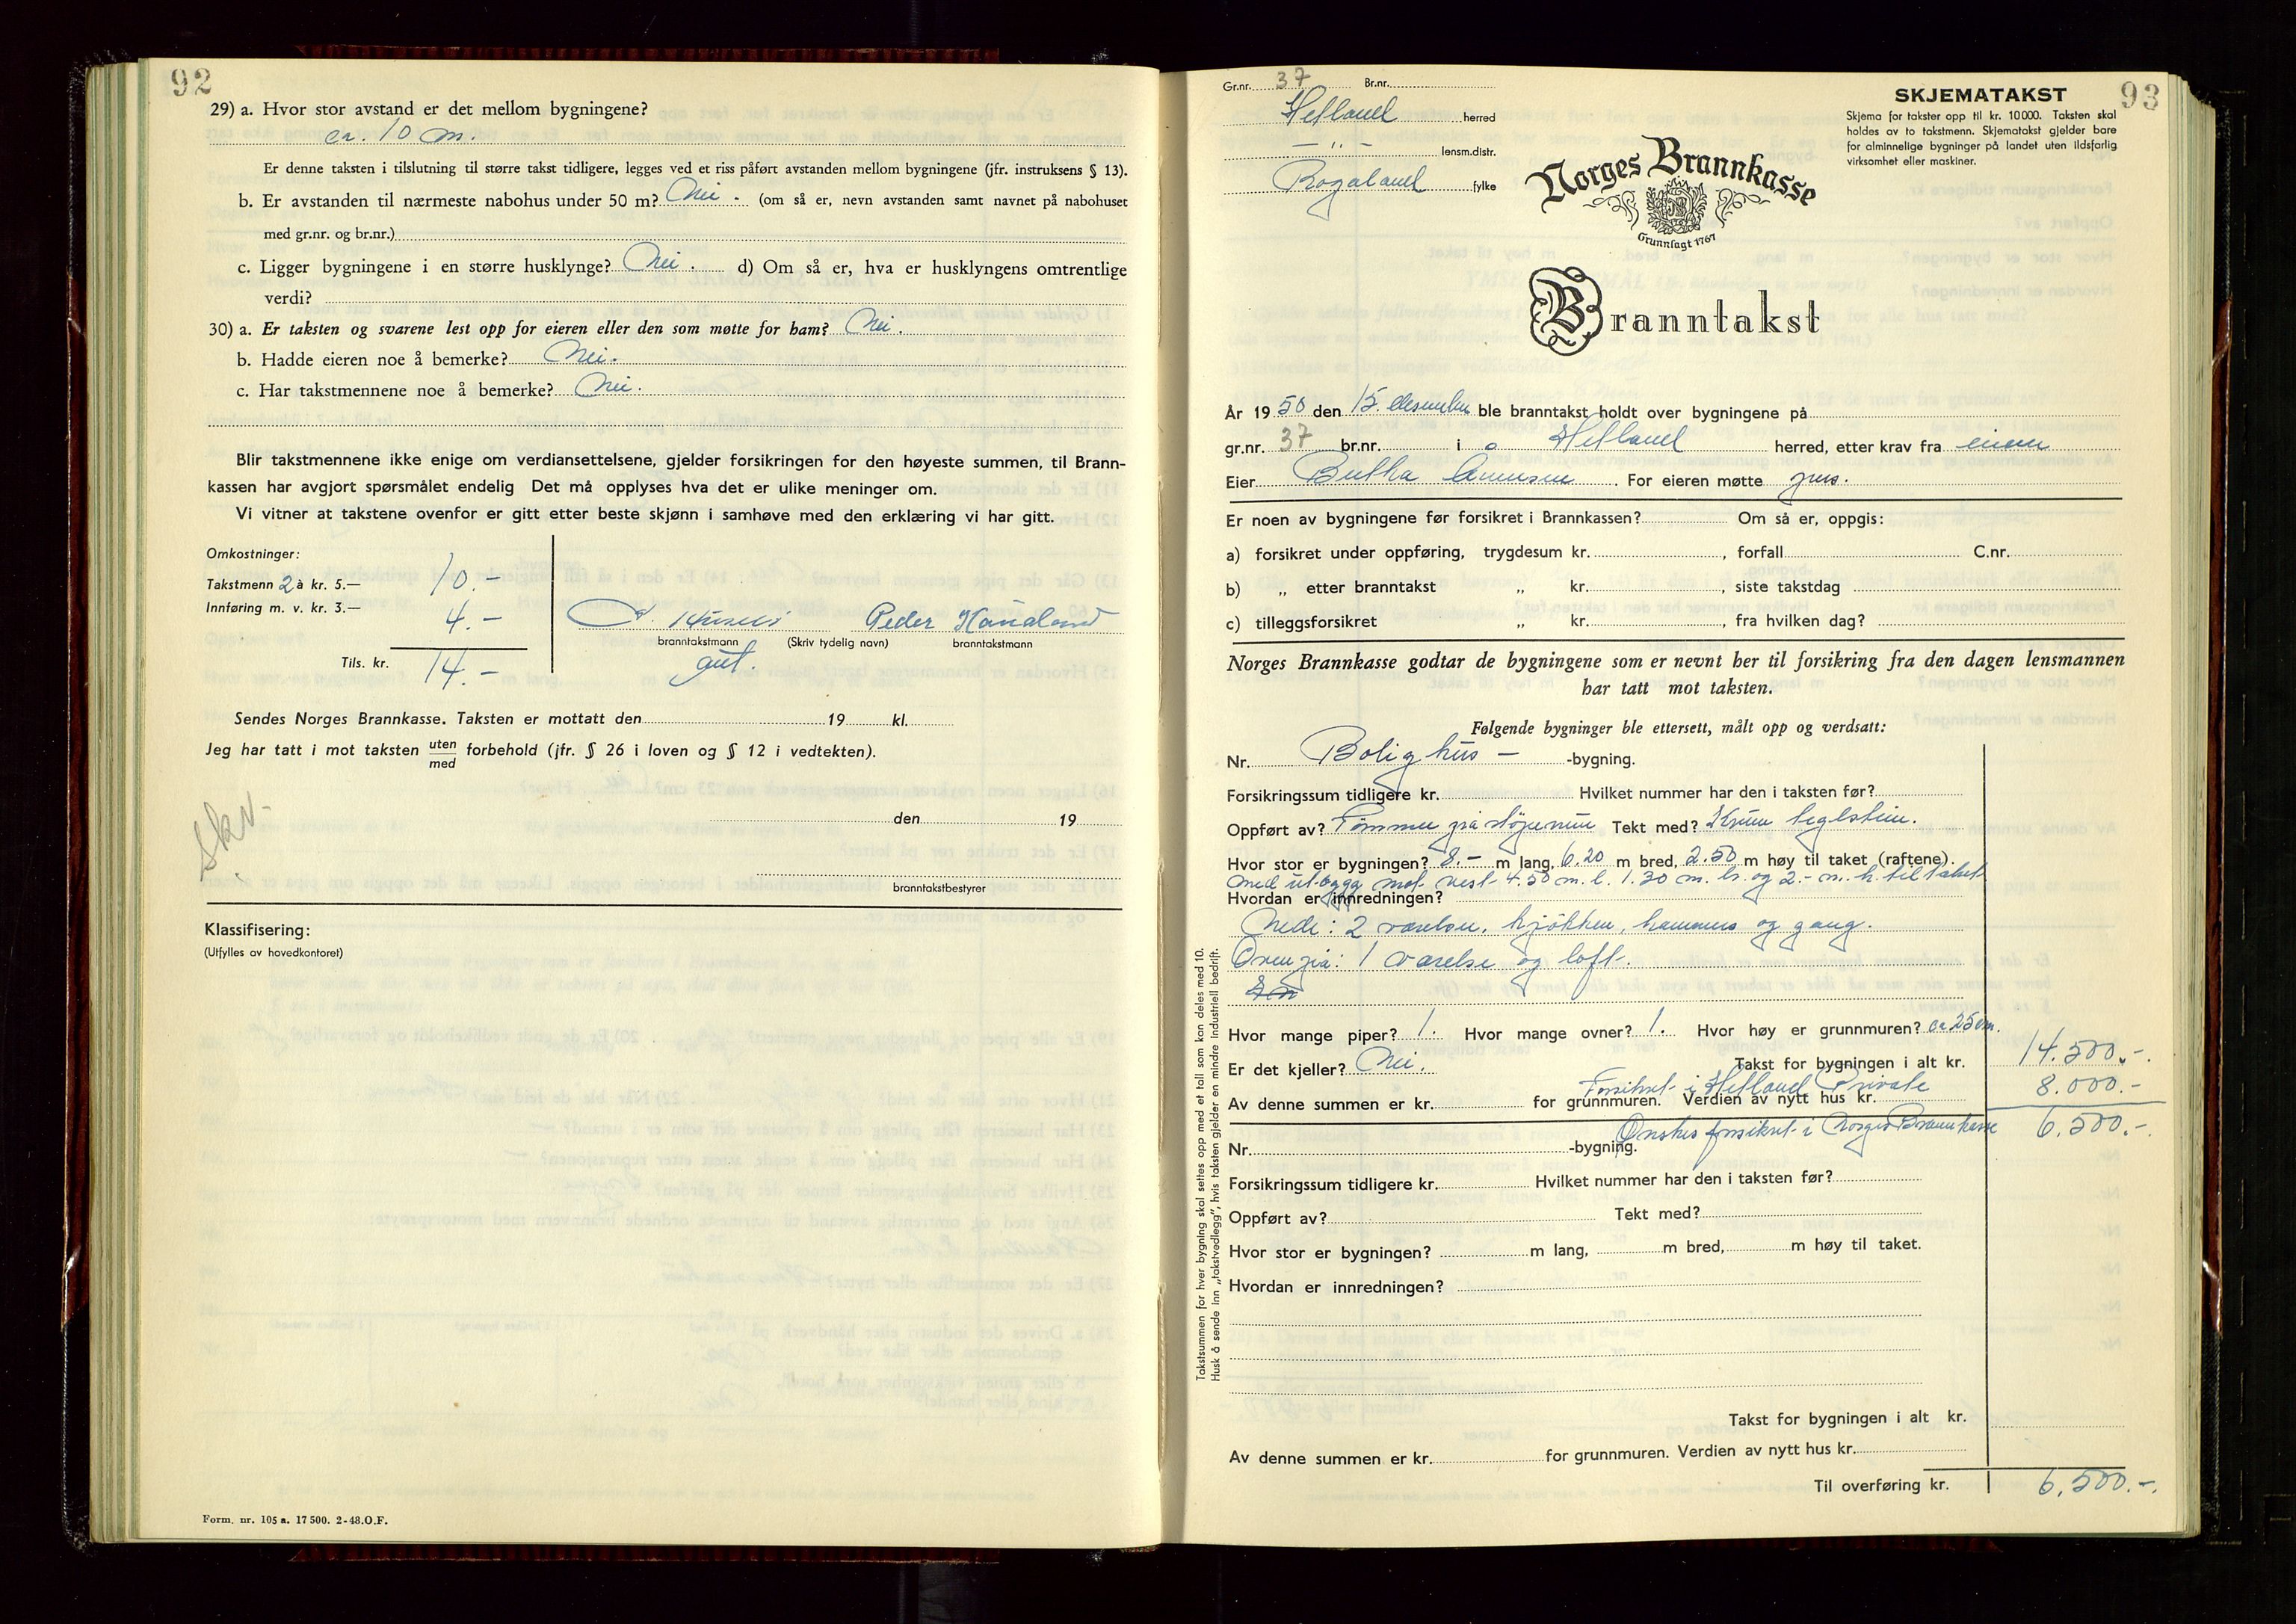 92
29) a. Hvor stor avstand er det mellom bygningene?
ca. 10 m.
Er denne taksten i tilslutning til større takst tidligere, legges ved et riss påført avstanden mellom bygningene (jfr. instruksens § 13).
b. Er avstanden til nærmeste nabohus under 50 m? Nei. (om så er, nevn avstanden samt navnet på nabohuset
med gr.nr. og br.nr.)
c. Ligger bygningene i en større husklynge? Nei. d) Om så er, hva er husklyngens omtrentlige
verdi?
30) a. Er taksten og svarene lest opp for eieren eller den som møtte for ham? Nei.
b. Hadde eieren noe å bemerke? Nei.
c. Har takstmennene noe å bemerke? Nei.
Blir takstmennene ikke enige om verdiansettelsene, gjelder forsikringen for den høyeste summen, til Brann-
kassen har avgjort spørsmålet endelig Det må opplyses hva det er ulike meninger om.
Vi vitner at takstene ovenfor er gitt etter beste skjønn i samhøve med den erklæring vi har gitt.
Omkostninger:
Takstmenn 2 à kr. 5.— 10.-
Innføring m. v. kr. 3.— 4.-
Peder
branntakstmann (Skriv tydelig navn) branntakstmann
Tils. kr. 14.-
Sendes Norges Brannkasse. Taksten er mottatt den 19 kl.
Jeg har tatt i mot taksten uten forbehold (jfr. § 26 i loven og § 12 i vedtekten).
med
Skv.
den 19
branntakstbestyrer
Klassifisering:
(Utfylles av hovedkontoret)
Form. nr. 105 a. 17 500. 2-48. O.F.
93
Gr.nr. 37 Br.nr.
Hetland herred
— „ — lensm.distr.
Rogaland fylke
SKJEMATAKST
Skjema for takster opp til kr. 10 000. Taksten skal
holdes av to takstmenn. Skjematakst gjelder bare
for alminnelige bygninger på landet uten ildsfarlig
virksomhet eller maskiner.
Norges Brannkasse
Grunnlagt 1767
Branntakst
År 1950 den 15. desember ble branntakst holdt over bygningene på
gr.nr. 37 br.nr. i Hetland herred, etter krav fra eieren
Eier Bertha For eieren møtte
Er noen av bygningene før forsikret i Brannkassen? Om så er, oppgis:
a) forsikret under oppføring, trygdesum kr. , forfall C.nr.
b) „ etter branntakst „ kr. , siste takstdag
c) tilleggsforsikret „ kr. , fra hvilken dag?
Norges Brannkasse godtar de bygningene som er nevnt her til forsikring fra den dagen lensmannen
har tatt mot taksten.
Følgende bygninger ble ettersett, målt opp og verdsatt:
Nr. Bolighus — -bygning.
Forsikringssum tidligere kr. Hvilket nummer har den i taksten før?
Oppført av? Tømmer på Tekt med? Krum teglstein.
Hvor stor er bygningen? 8.- m lang, 6.20 m bred, 2.50 m høy til taket (raftene).
med utbygg mot vest 4.50 m. l. 1.30 m. br. og 2.- m. h. til taket
Hvordan er innredningen?
Nede: 2 værelser, kjøkken, kammers og gang.
Ovenpå: 1 værelse og loft.
Hvor mange piper? 1. Hvor mange ovner? 1. Hvor høy er grunnmuren? ca 25 cm.
Er det kjeller? Nei. Takst for bygningen i alt kr. 14.500.-.
Forsikret i Hetland Private 8.000.-
Av denne summen er kr. for grunnmuren. Verdien av nytt hus kr.
Ønskes forsikret i Norges Brannkasse 6.500.-.
Nr. -bygning.
Forsikringssum tidligere kr. Hvilket nummer har den i taksten før?
Oppført av? Tekt med?
Hvor stor er bygningen? m lang, m bred, m høy til taket.
Hvordan er innredningen?
Takst for bygningen i alt kr.
Av denne summen er kr. for grunnmuren. Verdien av nytt hus kr.
Til overføring kr. 6.500.-.
Takstsummen for hver bygning skal settes opp med et tall som kan deles med 10.
Husk å sende inn „takstvedlegg", hvis taksten gjelder en mindre industriell bedrift.